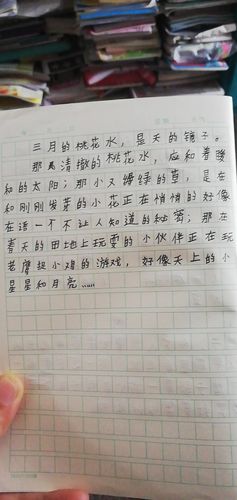 三月的桃花水，是天的镜子。
那是清撤的桃花水，应和着暖
和的太阳；那小又嫩绿的草，是在
和刚刚发芽的小花正在悄悄的好像
在话一个不让人知道的秘密；那在
春天的田地上玩耍的小伙伴正在玩
老鹰捉小鸡的游戏，好像天上的小
星星和月亮……